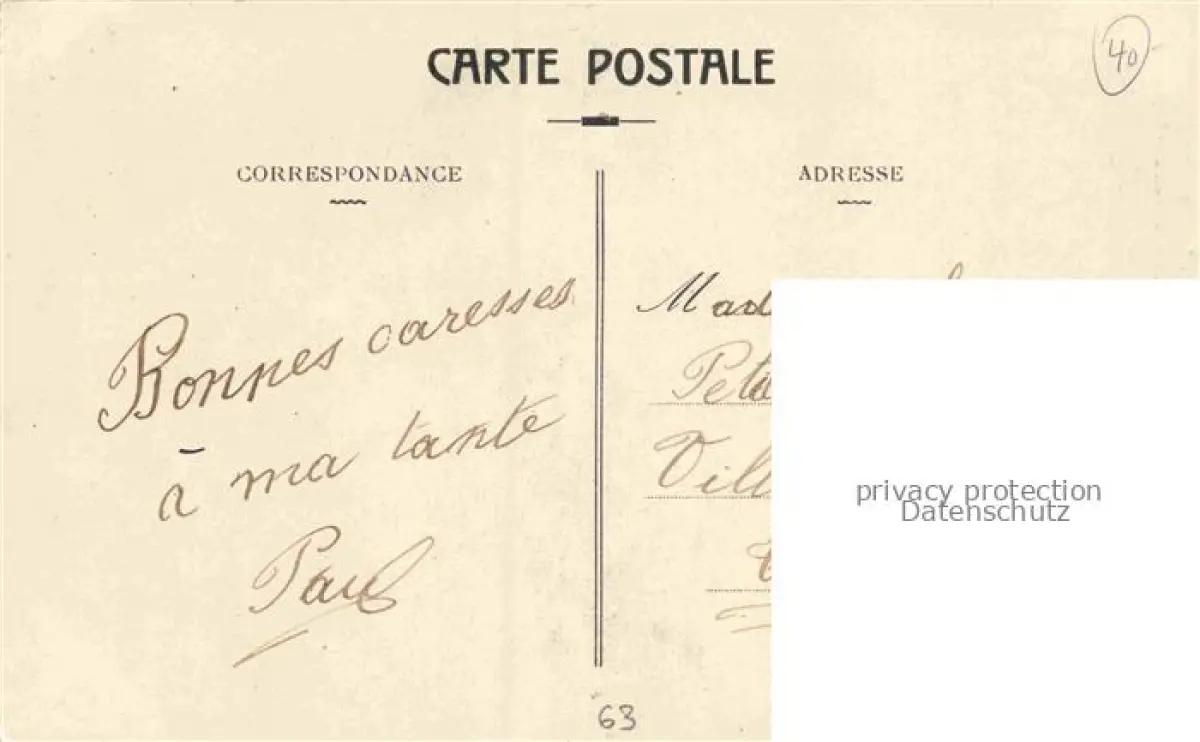 40
CARTE POSTALE
CORRESPONDANCE
ADRESSE
Bonnes caresses
à ma tante
Paul
Mad
Peti
Vill
privacy protection
Datenschutz
63